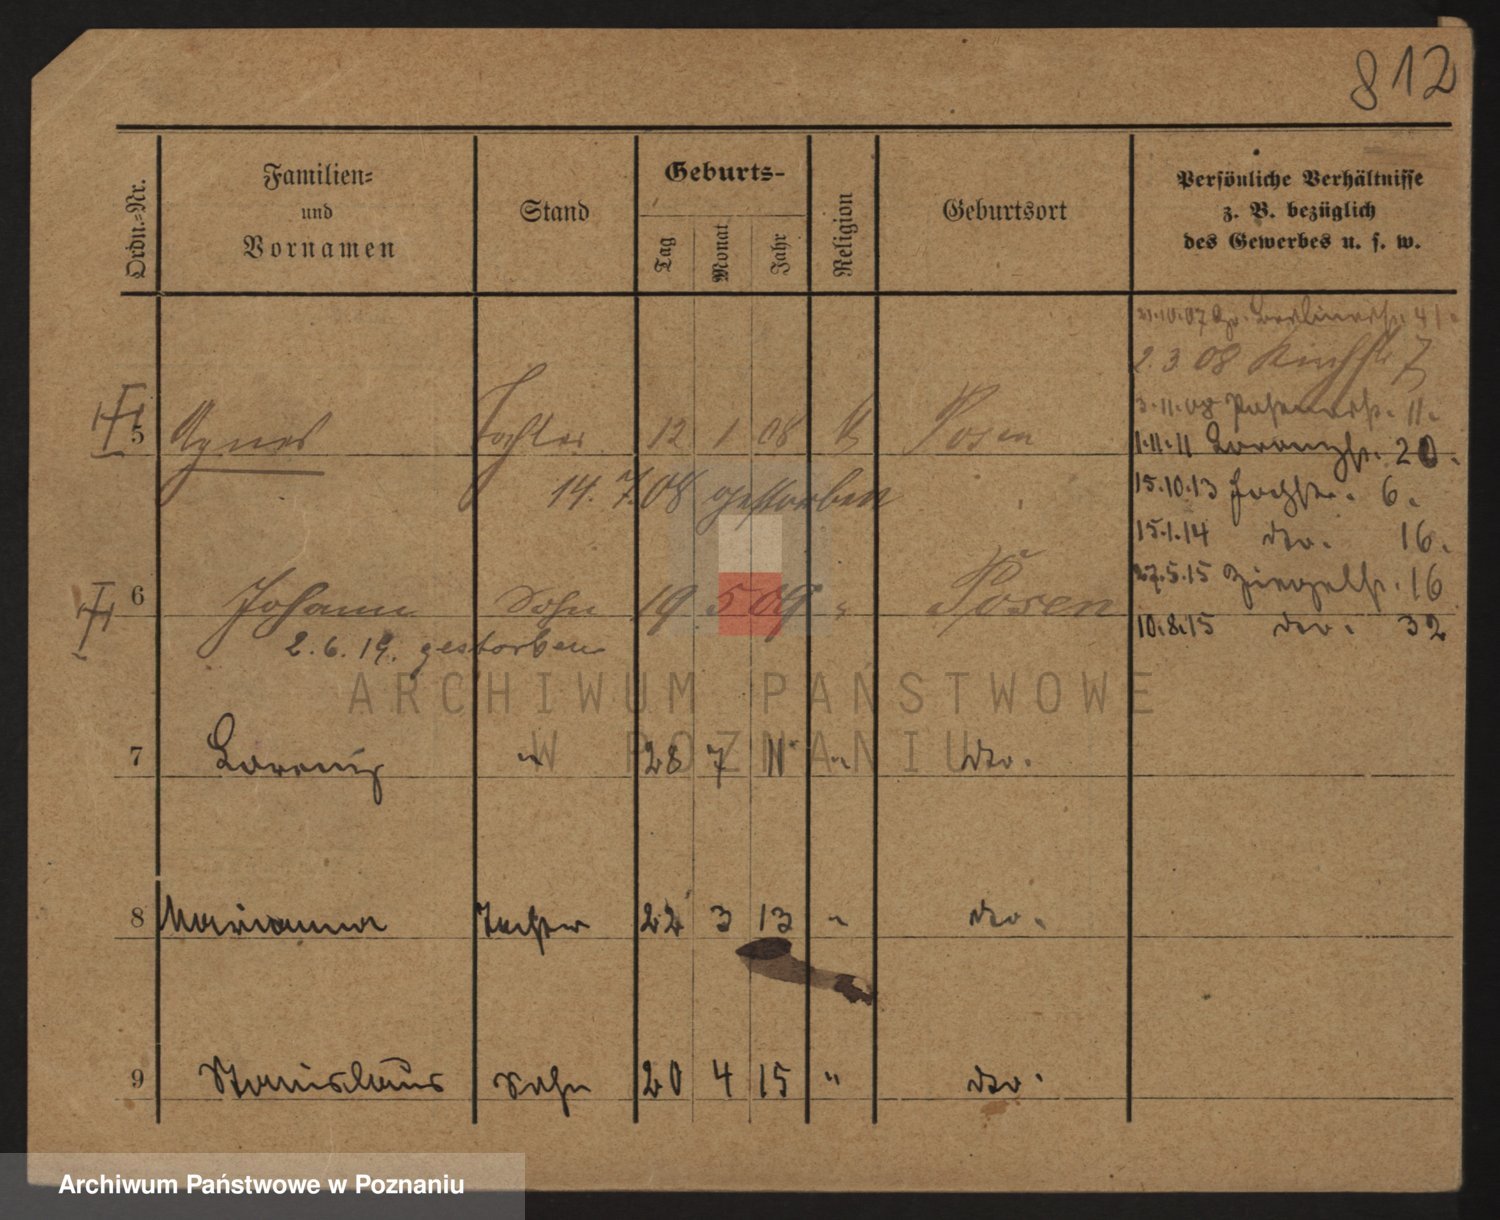 812
Ordn.-Nr.
Familien-
und
Vornamen
Stand
Geburts-
Tag
Monat
Jahr
Religion
Geburtsort
Persönliche Verhältnisse
z. B. bezüglich
des Gewerbes u. s. w.
21.10.07 Berlinerstr. 41.
2.3.08 Kirchstr. 7
3.11.08 Posenerstr. 11.
1.11.11 Lorenzstr. 20.
15.10.13 6.
15.1.14 do. 16.
27.5.15 Ziegelstr. 16
10.8.15 do. 32
5 Agnes Tochter 12 1 08 k Posen
14.7.08 gestorben
6 Johann Sohn 19 5 09 " Posen
2.6.19. gestorben
7 Lorenz " 28 7 11 " do.
8 Marianna Tochter 22 3 13 " do.
9 Stanislaus Sohn 20 4 15 " do.
ARCHIWUM PAŃSTWOWE
W POZNANIU
Archiwum Państwowe w Poznaniu